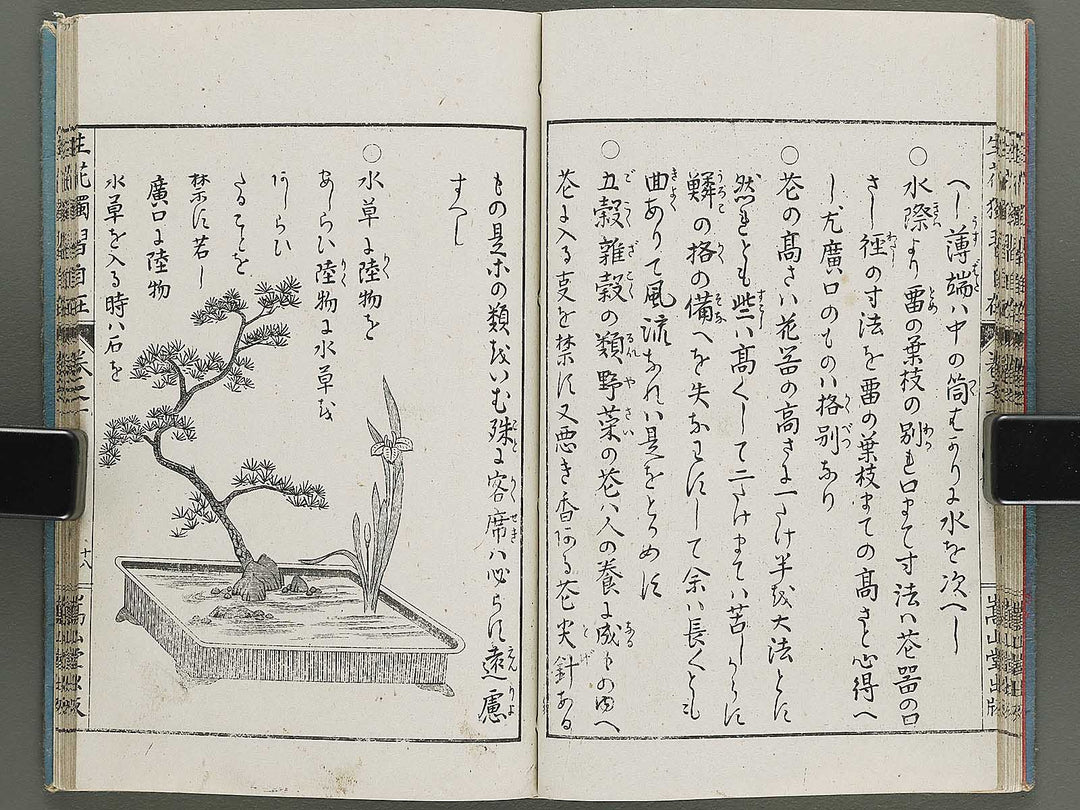 へし薄端ハ中の筒むかりに水を次へし
○水際より畱の葉枝の別れ口まて寸法ハ花器の口
さし徑の寸法を畱の葉枝まての髙さと心得へ
し尤廣口のものハ格別なり
○花の髙さハ花器の高さに一たけ半を大法とす
然れとも些ハ髙くして二たけまてハ苦しからす
鱗の格の備へを失なわすして余ハ長くとも
曲ありて風流なれハ是をとかめす
○五穀雑穀の類野菜の花ハ人の養に成ものゆへ
花に入る事を禁す又悪き香ある花尖針ある
もの是木の類をいむ殊に客席ハ必らす遠慮
すへし
○水草に陸物を
あしらひ陸物に水草を
あしらひ
たることを
禁す若し
廣口に陸物
水草を入る時ハ石を
生花獨習自在
卷之二
十八
嵩山堂出版